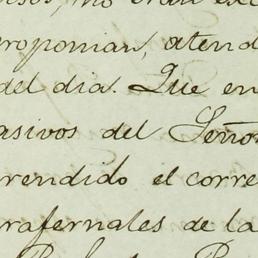 no eran
proponian, atend
del dia. Que en
asivos del Señor
rendido el corre
rafernales de la